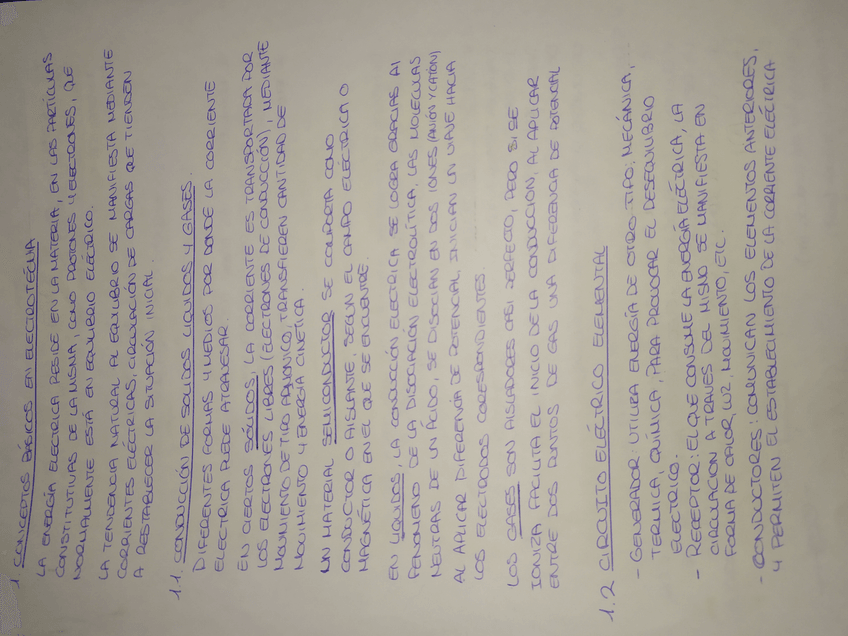 1 CONCEPTOS BÁSICOS EN ELECTROTECNIA
LA ENERGÍA ELECTRICA RESIDE EN LA MATERIA, EN LAS PARTÍCULAS
CONSTITUTIVAS DE LA MISMA, COMO PROTONES Y ELECTRONES, QUE
NORMALMENTE ESTÁ EN EQUILIBRIO ELÉCTRICO.
LA TENDENCIA NATURAL AL EQUILIBRIO SE MANIFIESTA MEDIANTE
CORRIENTES ELÉCTRICAS, CIRCULACIÓN DE CARGAS QUE TIENDEN
A RESTABLECER LA SITUACIÓN INICIAL.
1.1. CONDUCCIÓN DE SOLIDOS LIQUIDOS Y GASES.
DIFERENTES FORMAS Y MEDIOS POR DONDE LA CORRIENTE
ELECTRICA PUEDE ATRAVESAR.
EN CIERTOS SÓLIDOS, LA CORRIENTE ES TRANSPORTADA POR
LOS ELECTRONES LIBRES (ELECTRONES DE CONDUCCIÓN), MEDIANTE
MOVIMIENTO DE TIPO FONONICO, TRANSFIEREN CANTIDAD DE
MOVIMIENTO Y ENERGÍA CINETICA.
UN MATERIAL SEMICONDUCTOR SE COMPORTA COMO
CONDUCTOR O AISLANTE, SEGÚN EL CAMPO ELÉCTRICO O
MAGNÉTICA EN EL QUE SE ENCUENTRE.
EN LIQUIDOS, LA CONDUCCIÓN ELECTRICA SE LOGRA GRACIAS AL
FENOMENO DE LA DISOCIACIÓN ELECTROLÍTICA, LAS MOLECULAS
NEUTRAS DE UN ÁCIDO, SE DISOCIAN EN DOS IONES (ANIÓN Y CATIÓN)
AL APLICAR DIFERENCIA DE POTENCIAL, INICIAN UN VIAJE HACIA
LOS ELECTRODOS CORRESPONDIENTES.
LOS GASES SON AISLADORES CASI PERFECTO, PERO SI SE
IONIZA FACILITA EL INICIO DE LA CONDUCCIÓN, AL APLICAR
ENTRE DOS PUNTOS DE GAS UNA DIFERENCIA DE POTENCIAL
1.2 CIRCUITO ELÉCTRICO ELEMENTAL
- GENERADOR: UTILIZA ENERGÍA DE OTRO TIPO; MECÁNICA,
TERMICA, QUIMICA, PARA PROVOCAR EL DESEQUILIBRIO
ELECTRICO.
- RECEPTOR: EL QUE CONSUME LA ENERGÍA ELÉCTRICA, LA
CIRCULACION A TRAVÉS DEL MISMO SE MANIFIESTA EN
FORMA DE CALOR, LUZ, MOVIMIENTO, ETC.
- CONDUCTORES: COMUNICAN LOS ELEMENTOS ANTERIORES,
Y PERMITEN EL ESTABLECIMIENTO DE LA CORRIENTE ELÉCTRICA